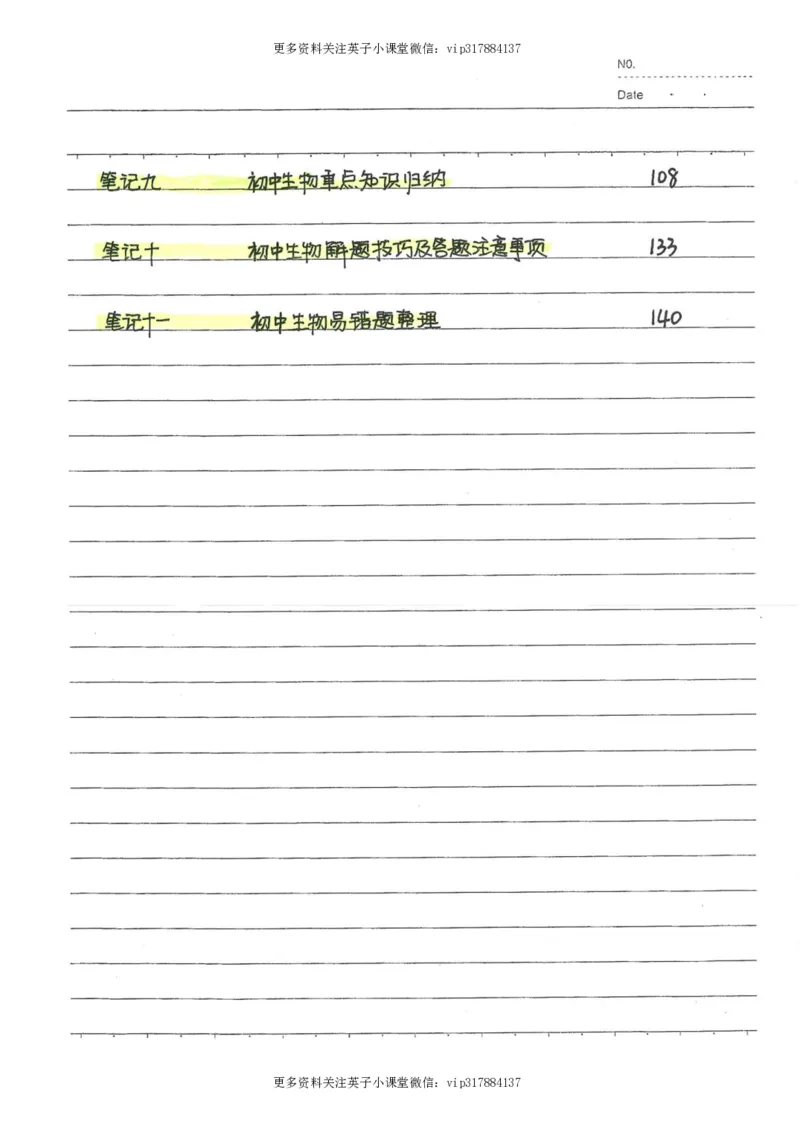 更多资料关注英子小课堂微信：vip317884137
NO.
Date
笔记九 初中生物重点知识归纳 108
笔记十 初中生物解题技巧及答题注意事项 133
笔记十一 初中生物易错题整理 140
更多资料关注英子小课堂微信：vip317884137